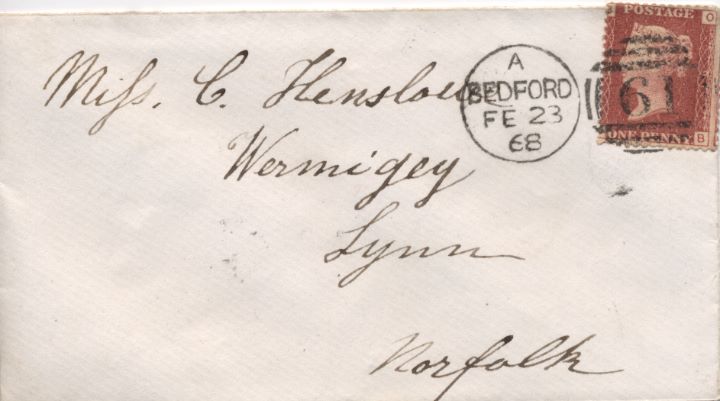 POSTAGE
O
A
BEDFORD
FE 23
68
61
ONE PENNY
B
Miss. C. Henslowe
Wermigey
Lynn
Norfolk